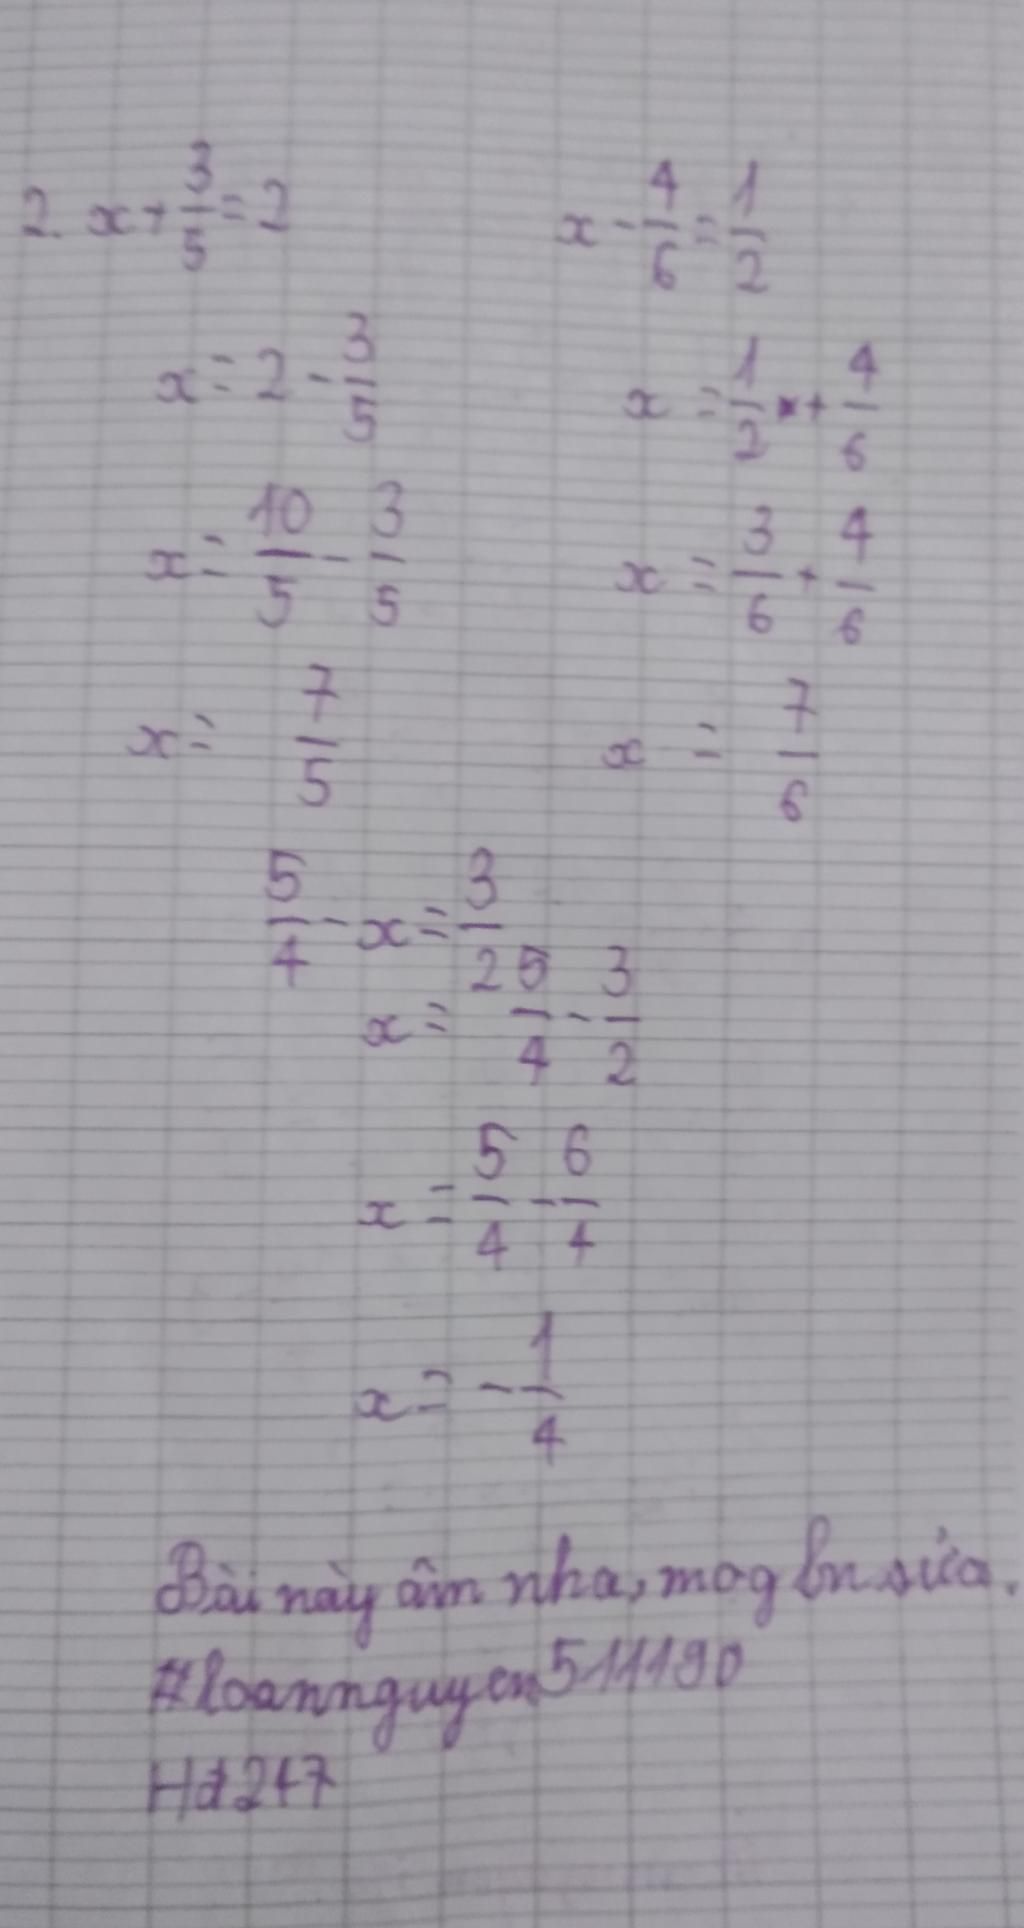 2. x + 3/5 = 2
x = 2 - 3/5
x = 10/5 - 3/5
x = 7/5
x - 4/6 = 1/2
x = 1/2 + 4/6
x = 3/6 + 4/6
x = 7/6
5/4 - x = 3/2
x = 5/4 - 3/2
x = 5/4 - 6/4
x = - 1/4
Bài này âm nha, mog bn sửa.
#loannguyen511190
Hd247